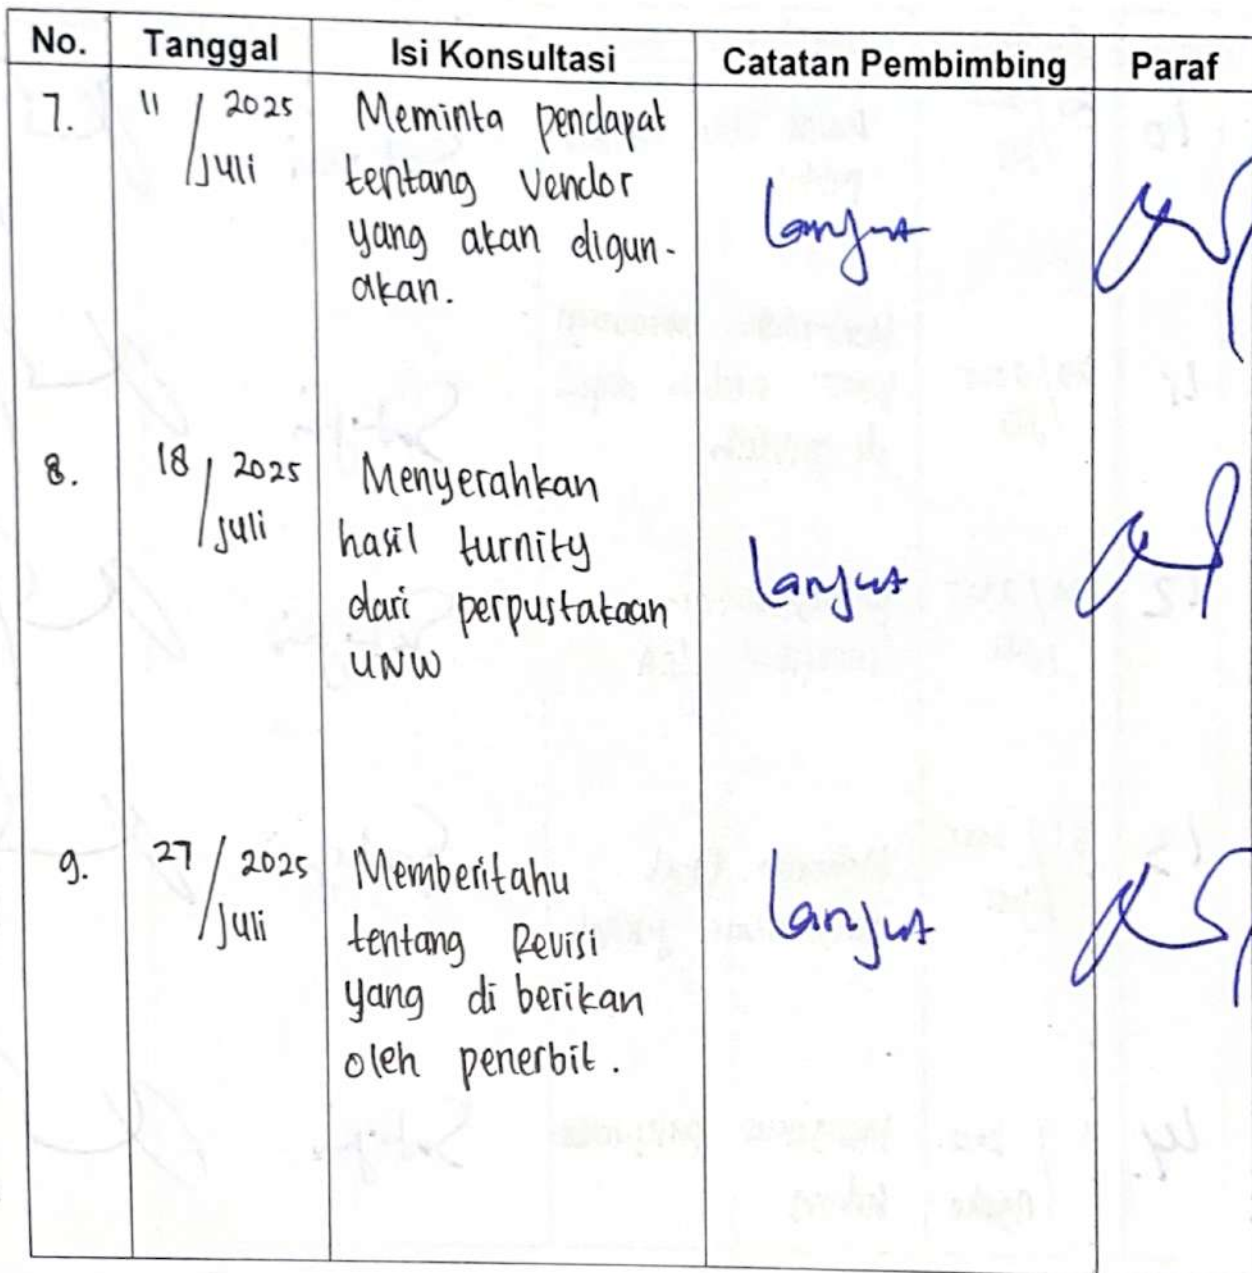 No. Tanggal Isi Konsultasi Catatan Pembimbing Paraf
7. 11 / 2025 Meminta pendapat
/ Juli tentang Vendor
yang akan digun-
akan.
Lanjut
8. 18 / 2025 Menyerahkan
/ Juli hasil turnity
dari perpustakaan
UNW
Lanjut
9. 27 / 2025 Memberitahu
/ Juli tentang Revisi
yang di berikan
oleh penerbit.
Lanjut